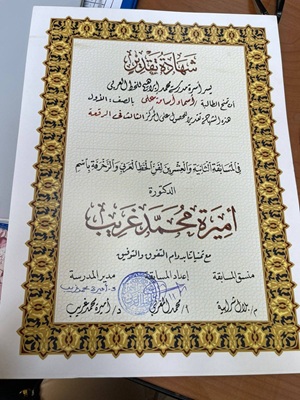 شهادة تقدير
يسر أسرة مدرسة محمد إبراهيم للخط العربي
أن تمنح الطالبة / أسماء أسامة علي بالصف: الأول
هذه الشهادة تقديراً لحصولها على المركز الثالث في الرقعة
في المسابقة الثانية والعشرين لفن الخط العربي والزخرفة باسم
الدكتورة
أميرة محمد غريب
مع تمنياتنا بدوام التفوق والتوفيق
منسق المسابقة إعداد المسابقة مدير المدرسة
د. أميرة محمد غريب
أ/ محمد المغربي د/ أميرة محمد غريب